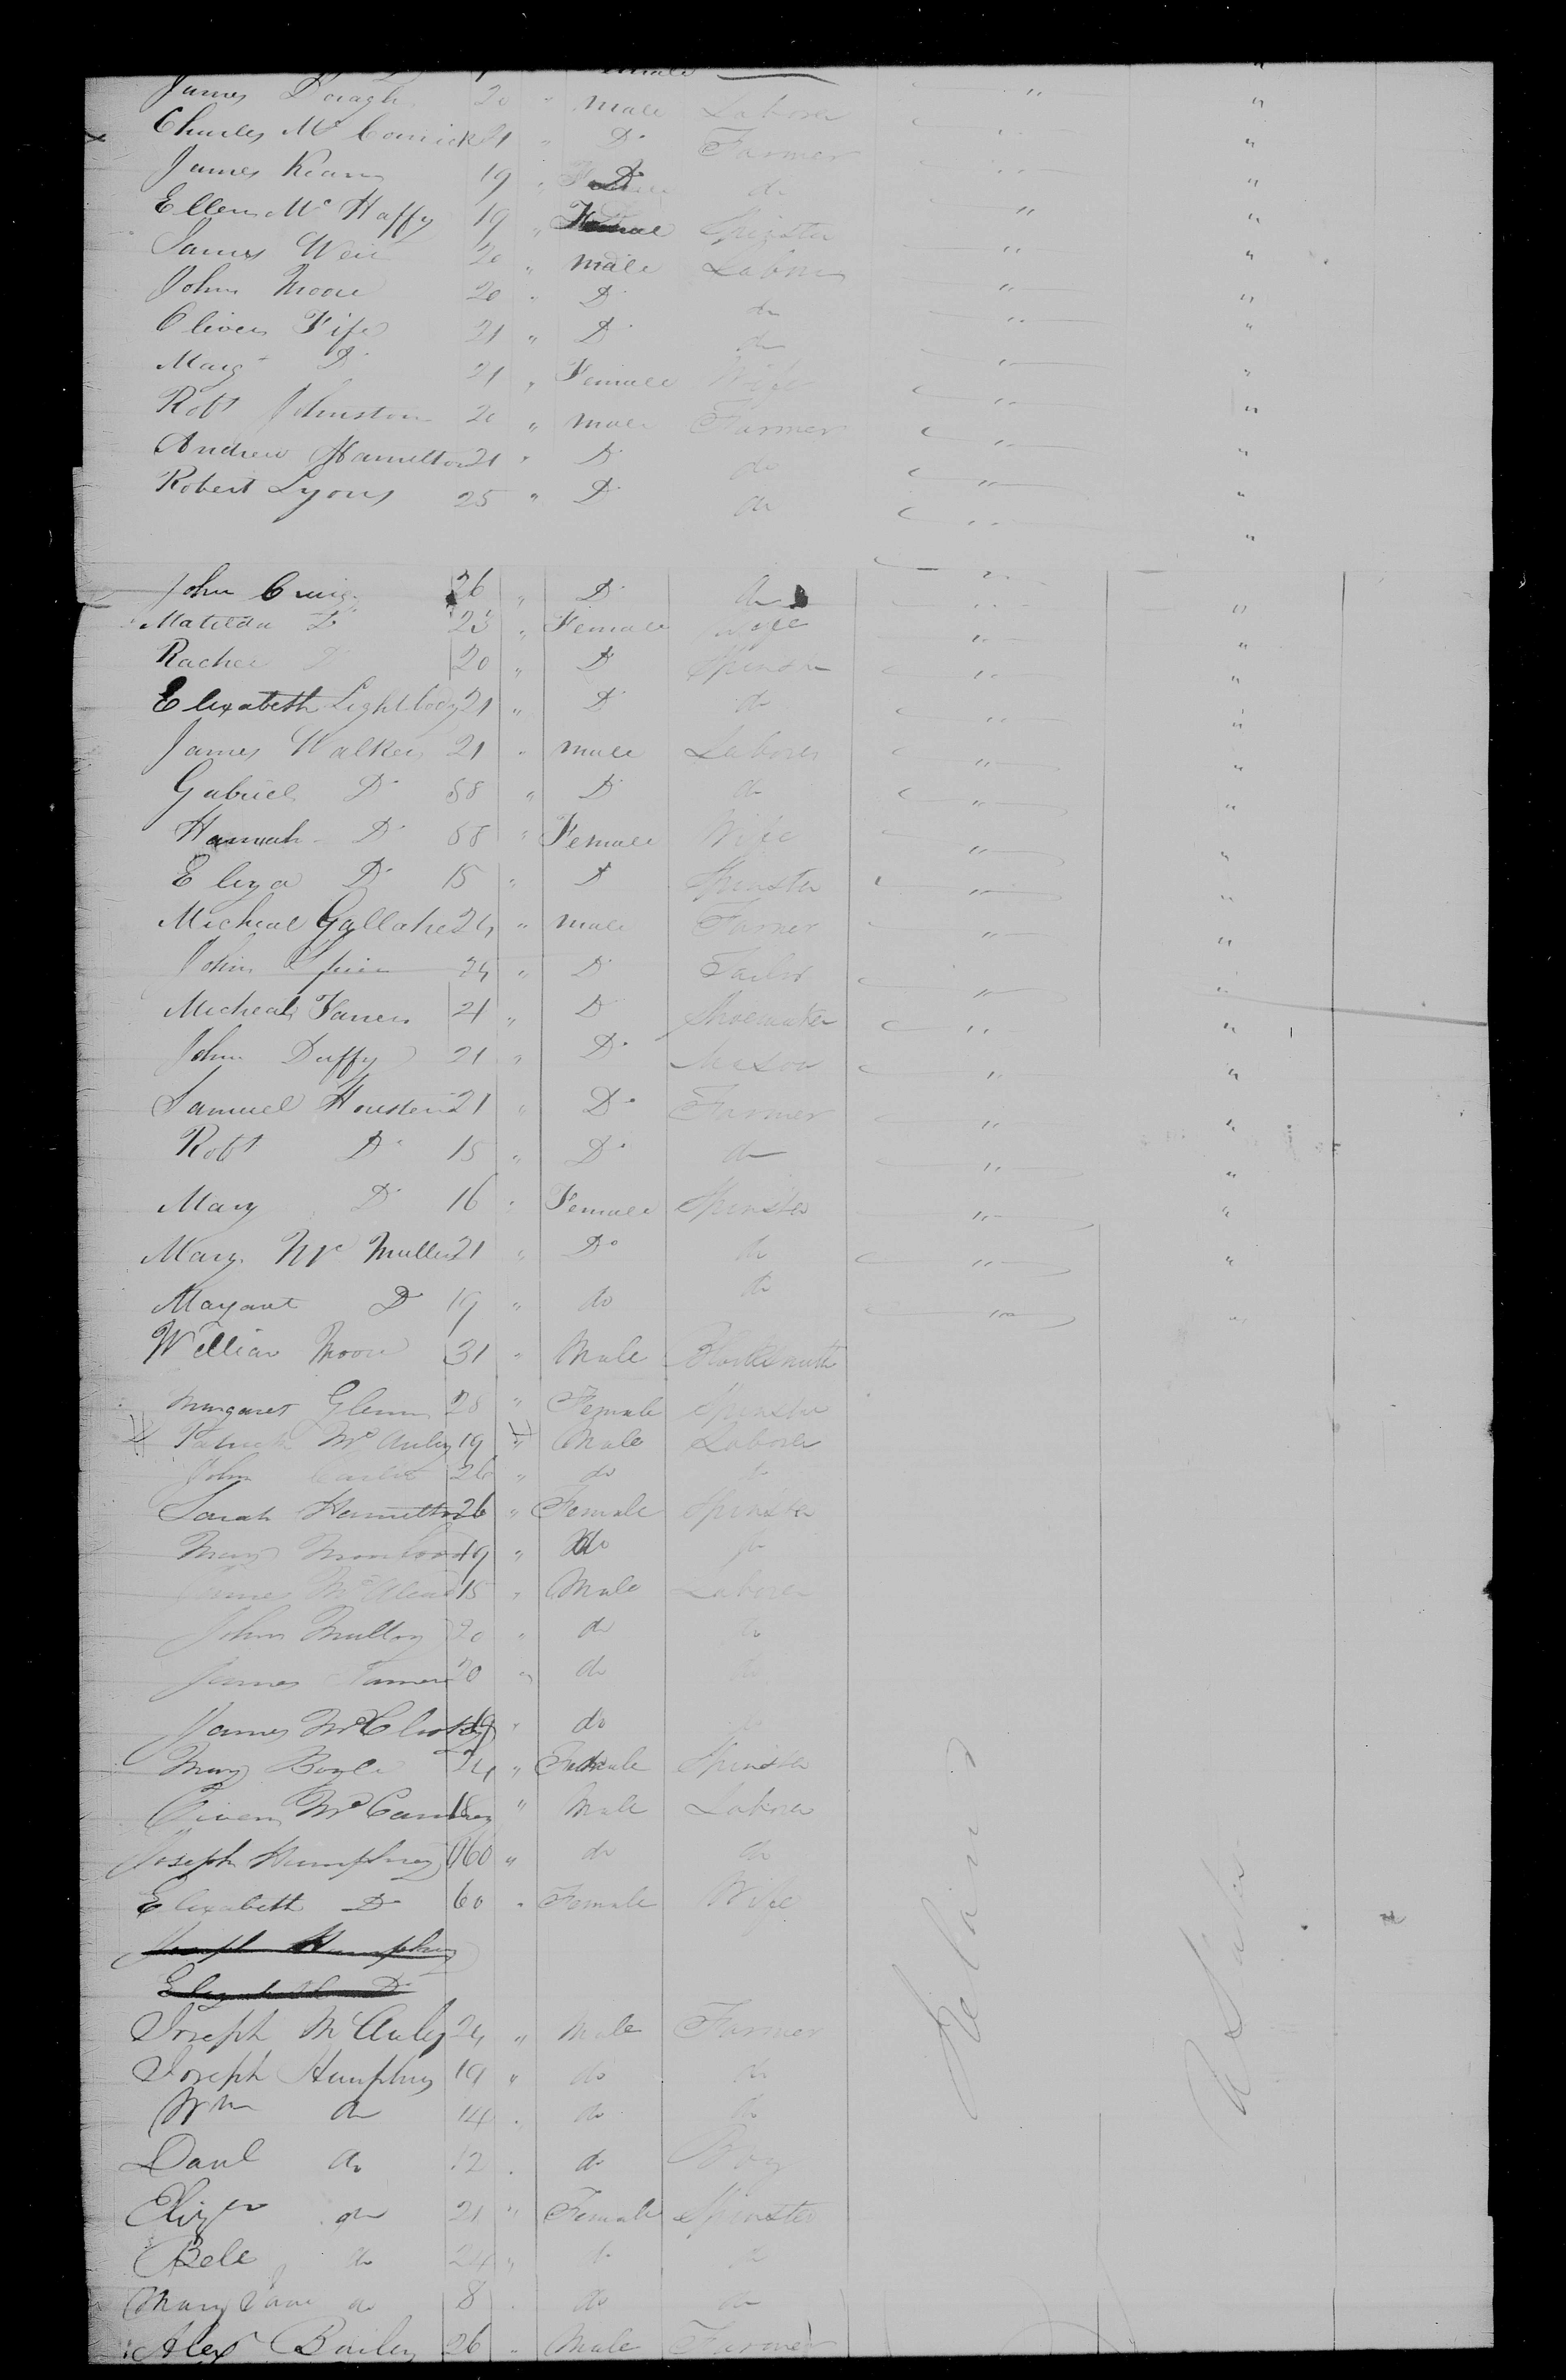 James Daragh 20 " male Laborer " "
Charles Mc Cormick 21 " Do Farmer " "
James Kearns 19 " Do do " "
Ellen Mc Haffy 19 " Female Spinster " "
James Weir 20 " male Laborer " "
John Moore 20 " Do do " "
Oliver Fife 21 " Do do " "
Marg Do 21 " Female Wife " "
Robt Johnston 20 " male Farmer " "
Andrew Hamilton 21 " Do do " "
Robert Lyons 25 " Do do " "
John Craig 26 " Do do " "
Matilda Do 23 " Female Wife " "
Rachel Do 20 " Do Spinster " "
Elizabeth Lightbody 21 " Do do " "
James Walker 21 " male Laborer " "
Gabriel Do 58 " Do do " "
Hannah Do 58 " Female Wife " "
Eliza Do 15 " Do Spinster " "
Micheal Gallaher 24 " male Farmer " "
John 24 " Do Tailor " "
Micheal Farren 21 " Do Shoemaker " "
John Duffy 21 " Do Mason " "
Samuel Housten 21 " Do Farmer " "
Robt Do 15 " Do do " "
Mary Do 16 " Female Spinster " "
Mary Mc Mullen 21 " Do do " "
Margaret Do 19 " do do " "
William Moore 31 " Male Blacksmith
Margaret Glenn 28 " Female Spinster
Patrick McAuley 19 " Male Laborer
John 26 " do do
Sarah Hamilton 26 " Female Spinster
Mary 19 " do do
James 15 " Male Laborer
John Mulloy 20 " do do
James 20 " do do
James McClusky 19 " do do
Mary Boyle 24 " Female Spinster
Owen 18 " Male Laborer
Joseph Humphrey 60 " do do
Elizabeth Do 60 " Female Wife
Joseph Humphrey
Elizabeth Do
Joseph McAuley 24 " Male Farmer
Joseph Humphrey 19 " do do
Wm do 14 " do do
Danl do 12 " do Boy
Eliza do 21 " Female Spinster
Bele do 24 " do do
Mary Jane do 8 " do do
Alex Bailey 26 " Male Farmer
Ireland
U States